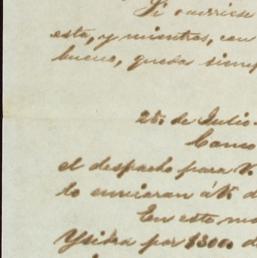 Si ocurriese
esta, y mientras, con
bueno, queda siemp
25. de Julio.
Como
el despacho para V.
lo enviaran á V. d
En este mo
por $3000 d